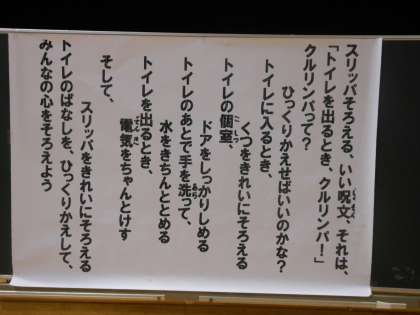 スリッパそろえる、いい呪文、それは、
「トイレを出るとき、クルリンパ!」
クルリンパって?
ひっくりかえせばいいのかな?
トイレに入るとき、
くつをきれいにそろえる
トイレの個室、
ドアをしっかりしめる
トイレのあとで手を洗って、
水をきちんととめる
トイレを出るとき、
電気をちゃんとけす
そして、
スリッパをきれいにそろえる
トイレのぱなしを、ひっくりかえして、
みんなの心をそろえよう